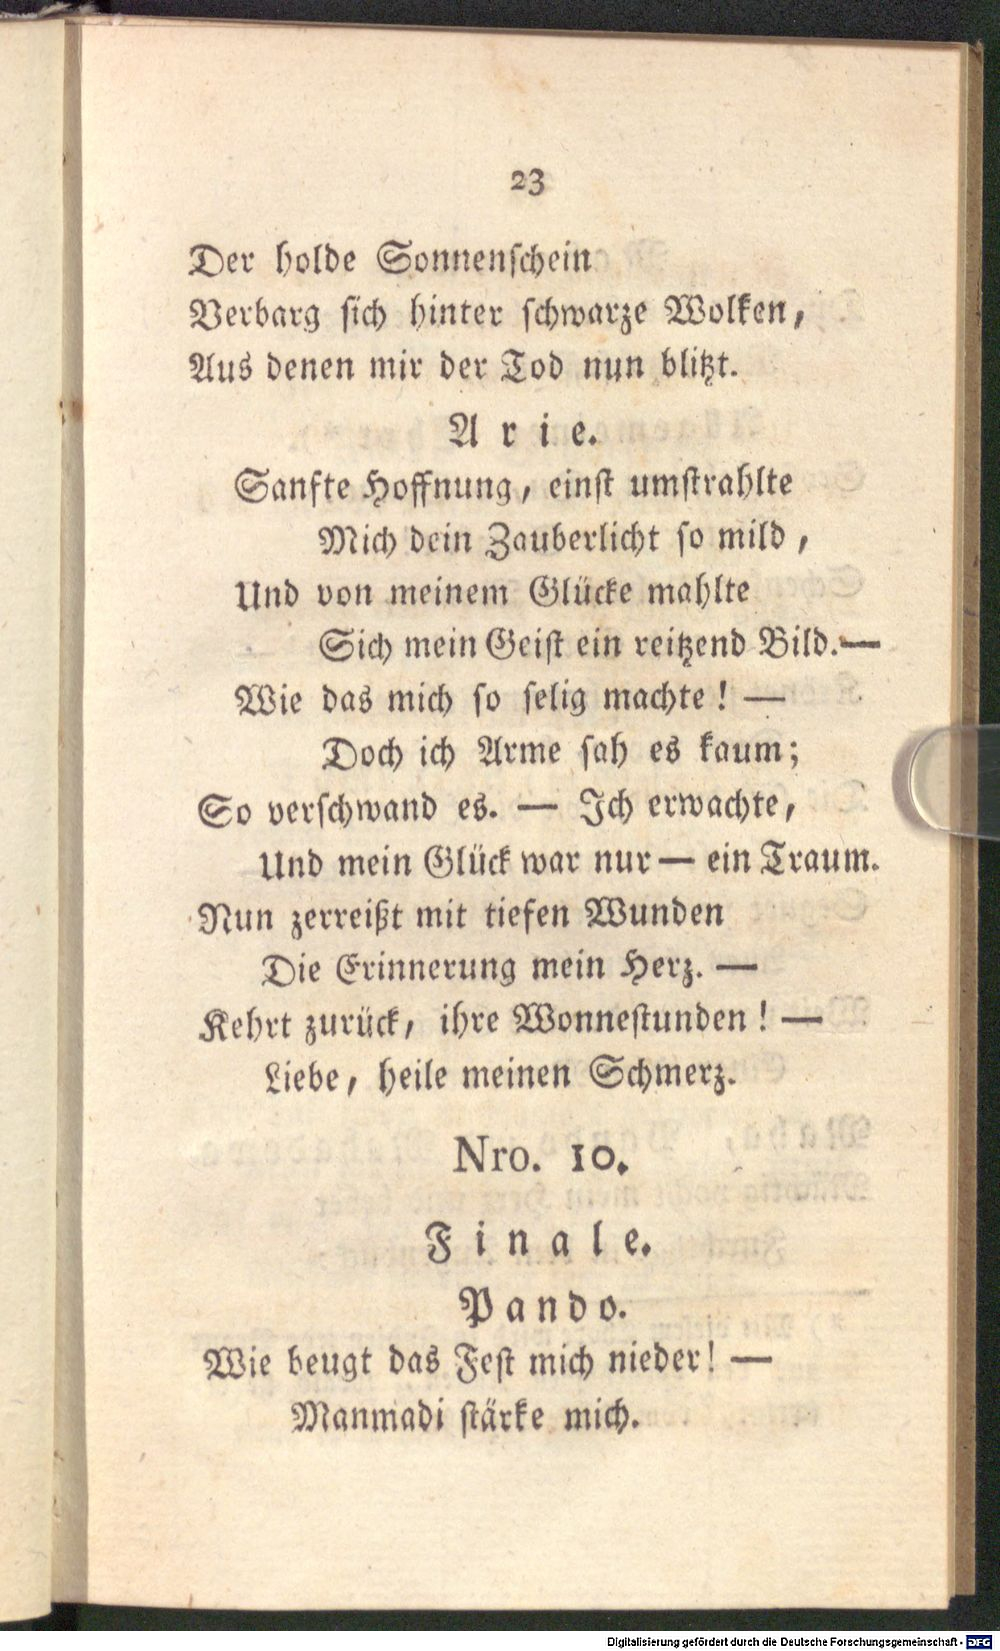 23
Der holde Sonnenschein
Verbarg sich hinter schwarze Wolken,
Aus denen mir der Tod nun blitzt.
Arie.
Sanfte Hoffnung, einst umstrahlte
Mich dein Zauberlicht so mild,
Und von meinem Glücke mahlte
Sich mein Geist ein reitzend Bild. —
Wie das mich so selig machte! —
Doch ich Arme sah es kaum;
So verschwand es. — Ich erwachte,
Und mein Glück war nur — ein Traum.
Nun zerreißt mit tiefen Wunden
Die Erinnerung mein Herz. —
Kehrt zurück, ihre Wonnestunden! —
Liebe, heile meinen Schmerz.
Nro. 10.
Finale.
Pando.
Wie beugt das Fest mich nieder! —
Manmadi stärke mich.
Digitalisierung gefördert durch die Deutsche Forschungsgemeinschaft - DFG